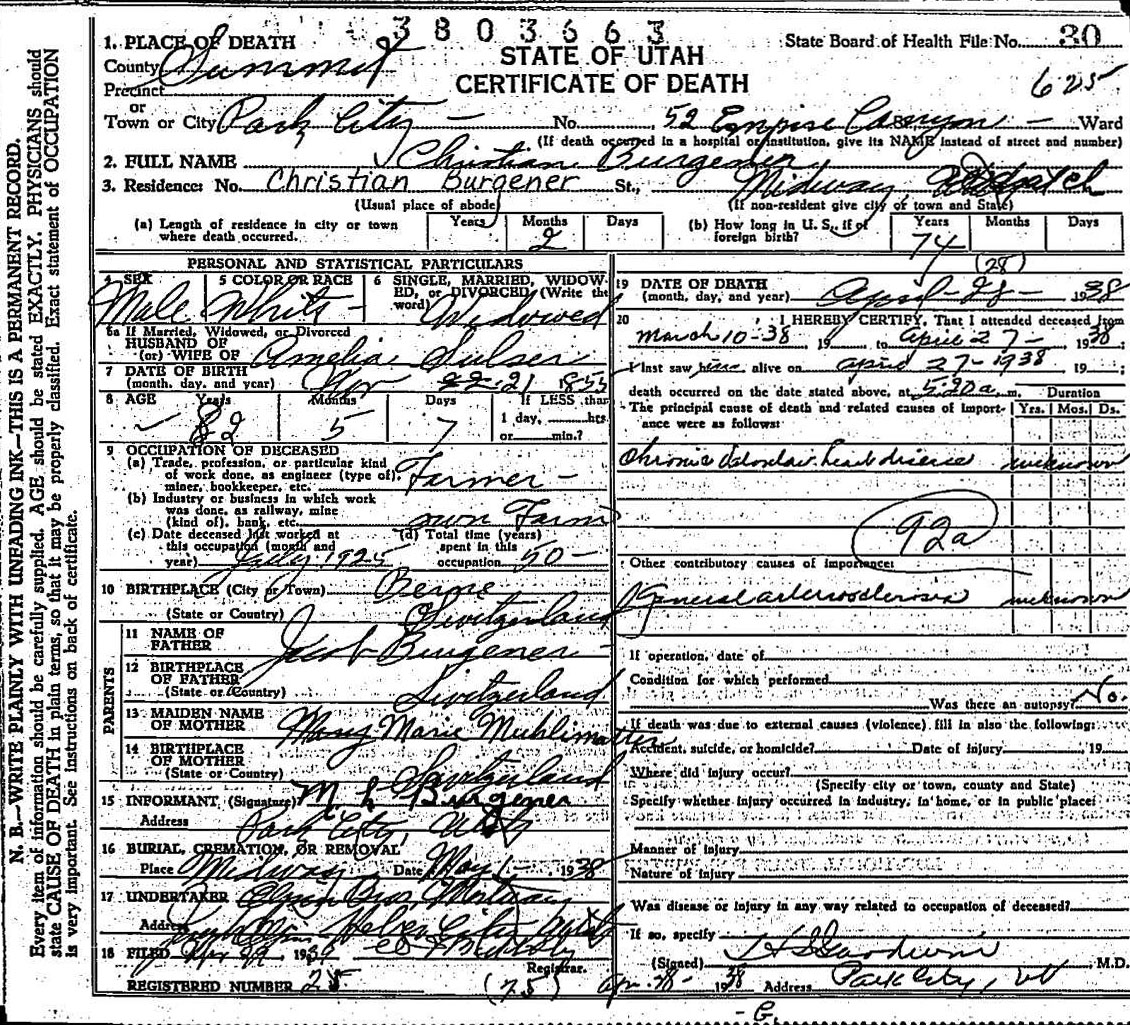 3803663
1. PLACE OF DEATH
STATE OF UTAH
CERTIFICATE OF DEATH
State Board of Health File No. 30
625
County Summit
Precinct
or
Town or City Park City - No. 52 Empire Canyon - Ward
(If death occurred in a hospital or institution, give its NAME instead of street and number)
2. FULL NAME Christian Burgener
3. Residence: No. Christian Burgener St., Midway, Wasatch
(Usual place of abode) (If non-resident give city or town and State)
(a) Length of residence in city or town where death occurred. Years Months 2 Days
(b) How long in U. S., if of foreign birth? Years 74 Months Days
PERSONAL AND STATISTICAL PARTICULARS
4 SEX Male
5 COLOR OR RACE White -
6 SINGLE, MARRIED, WIDOWED, or DIVORCED (Write the word) Widowed
6a If Married, Widowed, or Divorced
HUSBAND OF
(or) WIFE OF Amelia Sulser
7 DATE OF BIRTH
(month, day, and year) Nov 22-21 1855
8 AGE Years 82 Months 5 Days 7 If LESS than 1 day, hrs. or min.?
9 OCCUPATION OF DECEASED
(a) Trade, profession, or particular kind of work done, as engineer (type of), miner, bookkeeper, etc. Farmer -
(b) Industry or business in which work was done, as railway, mine (kind of), bank, etc. own Farm
(c) Date deceased last worked at this occupation (month and year) July 1925
(d) Total time (years) spent in this occupation 50 -
10 BIRTHPLACE (City or Town) Berne
(State or Country) Switzerland
PARENTS
11 NAME OF FATHER Jacob Burgener -
12 BIRTHPLACE OF FATHER
(State or Country) Switzerland
13 MAIDEN NAME OF MOTHER Mary Marie Muhlimatter
14 BIRTHPLACE OF MOTHER
(State or Country) Switzerland
15 INFORMANT (Signature) M L Burgener
Address Park City, Utah
16 BURIAL, CREMATION, OR REMOVAL
Place Midway Date May 1 - 1938
17 UNDERTAKER Bros Mortuary
Address Heber City Utah
18 FILED Apr 1938
Registrar.
REGISTERED NUMBER 25 (75)
(28)
19 DATE OF DEATH
(month, day, and year) April-28- 1938
20 I HEREBY CERTIFY, That I attended deceased from
March 10-38 19 to April 27- 1938;
I last saw him alive on april 27-1938 19 ;
death occurred on the date stated above, at 5:20 a. m. Duration
The principal cause of death and related causes of importance were as follows: Yrs. Mos. Ds.
Chronic heart disease unknown
92a
Other contributory causes of importance:
General arteriosclerosis unknown
If operation, date of
Condition for which performed
Was there an autopsy? No.
If death was due to external causes (violence) fill in also the following:
Accident, suicide, or homicide? Date of injury 19
Where did injury occur?
(Specify city or town, county and State)
Specify whether injury occurred in industry, in home, or in public place:
Manner of injury
Nature of injury
Was disease or injury in any way related to occupation of deceased?
If so, specify
(Signed) M.D.
Apr. 28- 1938 Address Park City, Ut
- G.
N. B.—WRITE PLAINLY WITH UNFADING INK—THIS IS A PERMANENT RECORD.
Every item of information should be carefully supplied. AGE should be stated EXACTLY. PHYSICIANS should
state CAUSE OF DEATH in plain terms, so that it may be properly classified. Exact statement of OCCUPATION
is very important. See instructions on back of certificate.